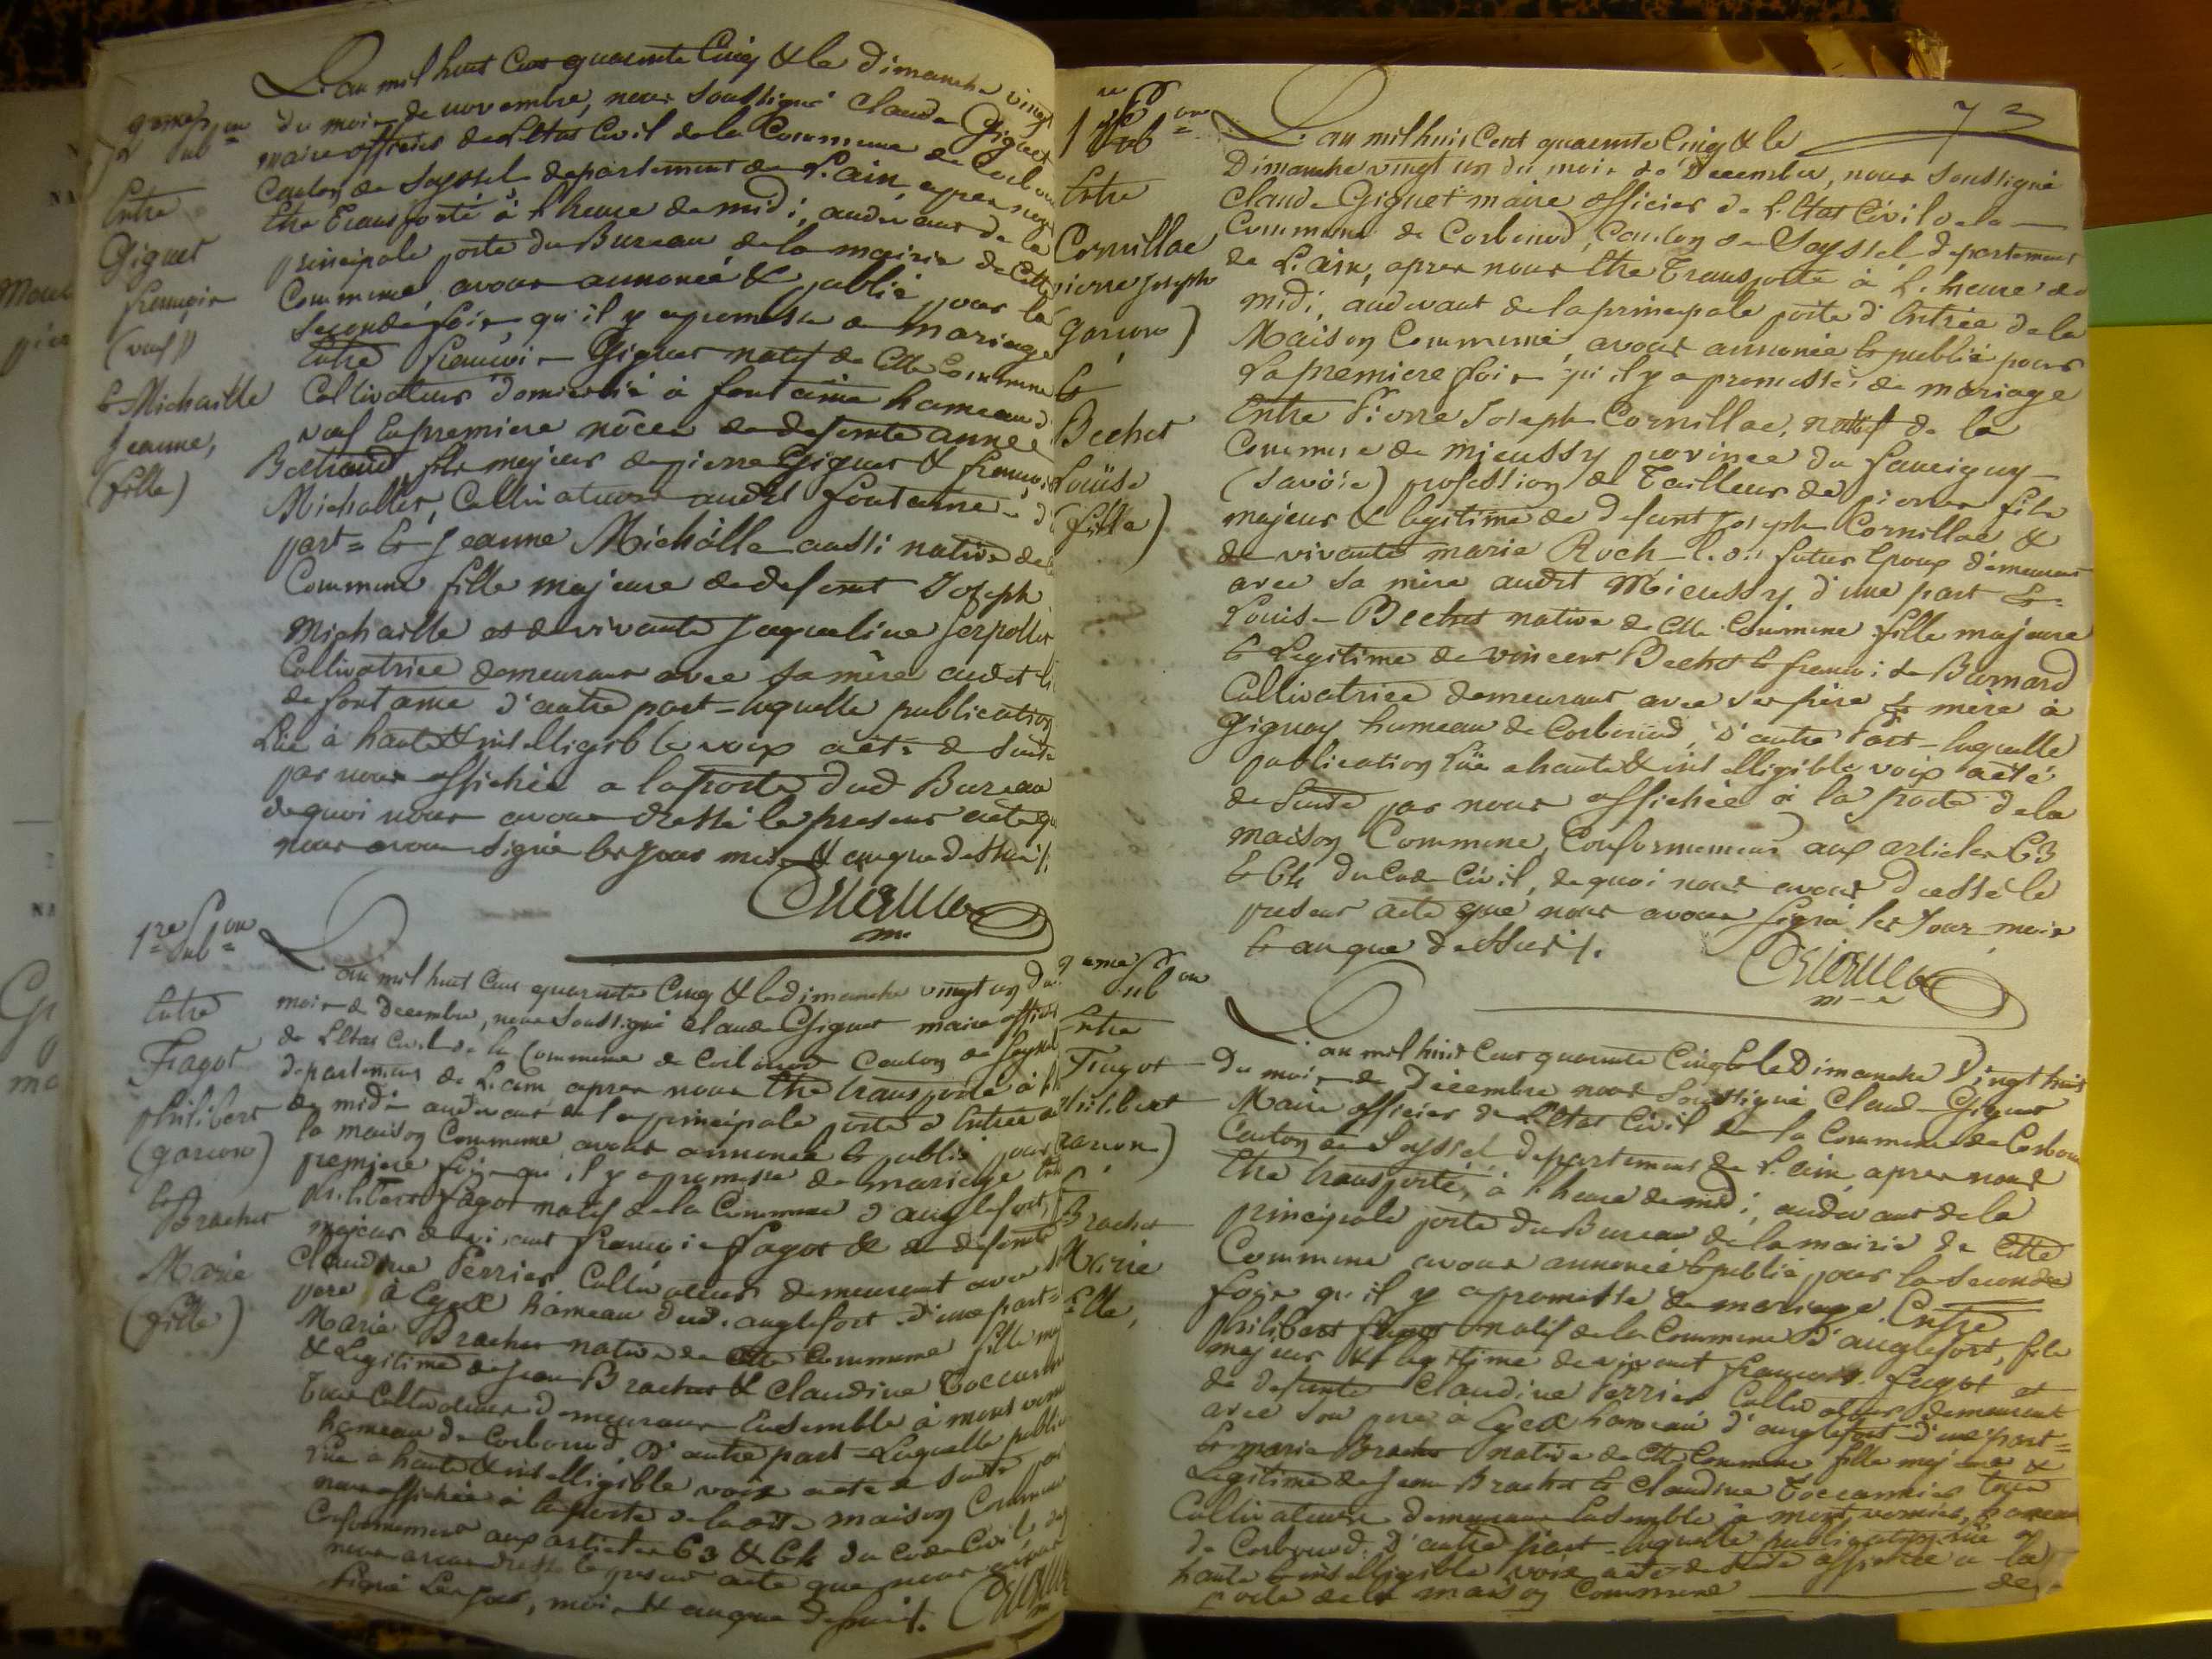 L'an mil huit Cent quarante Cinq & le dimanche vingt
du mois de novembre, nous soussigné Claude Giguet
maire officier de L'Etat Civil de la Commune de Corbon
Canton de Seyssel departement de L'ain, apres nous
Etre Transporté à l'heure de midi, audevant de la
principale porte du Bureau de la mairie de Cette
Commune, avons annoncé & publié pour la
Seconde fois qu'il y a promesse de mariage
Entre
Giguet
françois
(veuf)
& Michaille
Jeanne,
(fille)
Entre françois Giguet natif de Cette Commune
Cultivateur domicilié à fontaine hameau d
veuf En premiere nôces de defunte anne
Bertrand, fils majeur de pierre Giguet & françoise
Michallet, Cultivateurs audit fontaine d'
part = & Jeanne Michâlle aussi native de
Commune fille majeure de defunt Joseph
Michaille et de vivante Jaqueline Jerpollet
Cultivatrice demeurant avec sa mère audit li
de fontaine d'autre part = laquelle publication
Lüe à haute & intelligible voix a été de suite
par nous affichée a la porte dud Bureau
de quoi nous avons dressé le present acte q
nous avons signé les jour mois & an que dessus /.
Giguet
m.
1re Pub on
Entre
Fagot
philibert
(garçon)
&
Brachet
Marie
(fille)
L'an mil huit Cent quarante Cinq & le dimanche vingt un du
mois de decembre, nous soussigné Claude Giguet maire officier
de L'Etat Civil de la Commune de Corbonod Canton de Seyssel
departement de L'ain apres nous Etre transporté à l'h
de midi audevant de la principale porte d'Entrée de
la maison Commune avons annoncé & publié pour
premiere fois qu'il y a promesse de mariage Entre
philibert Fagot natif de la Commune d'anglefort, f
majeur de vivant françois Fagot & de defunte
Claudine Perrier Cultivateur demeurant avec s
pere à Eycel hameau dud. anglefort d'une part
Marie Brachet native de Cette Commune fille maj
& Legitime de Jean Brachet & Claudine Toccanier
Tous Cultivateurs demeurant Ensemble à mont
hameau de Corbonod, D'autre part = Laquelle public
lüe a haute & intelligible voix a été de suite par
nous affichée à la porte de ladite maison Commune
Conformement aux articles 63 & 64 du Code Civil de
nous avons dressé le present acte que nous avons
signé Les jour, mois & an que dessus /.
73
1re Pub on
Entre
Cornillac
pierre joseph
garçon)
&
Bechet
Loüise
(fille)
L'an mil huit Cent quarante Cinq & le
Dimanche vingt un du mois de Decembre, nous soussigné
Claude Giguet maire officier de L'Etat Civil de la
Commune de Corbonod, Canton de Seyssel departement
de L'ain, apres nous Etre Transporté à L'heure de
midi, audevant de la principale porte d'Entrée de la
Maison Commune, avons annoncé & publié pour
La premiere fois qu'il y a promesse de mariage
Entre Pierre Joseph Cornillac, natif de la
Commune de mieussy province du faucigny
(savöie) profession de Tailleur de pierres fils
majeur & legitime de defunt Joseph Cornillac &
de vivante marie Roch led.it futur Epoux demeurant
avec sa mère audit Mieussy d'une part &
Louise Bechet native de Cette Commune fille majeure
& Legitime de vincent Bechet & françoise Barnard
Cultivatrice demeurant avec ses père & mère à
Gignay hameau de Corbonod, D'autre Part = laquelle
publication lüe a haute & intelligible voix a été
de suite par nous affichée à la porte de la
maison Commune, Conformement aux articles 63
& 64 du Code Civil, de quoi nous avons dressé le
present acte que nous avons signé les Jour mois
& an que dessus /.
Giguet
2eme Pub on
Entre
Fagot
philibert
garçon)
&
Brachet
Marie
fille,
L'an mil huit Cent quarante Cinq & le Dimanche Vingt huit
Du mois de Décembre nous Soussigné Claude Giguet
Maire officier de L'Etat Civil de la Commune de Corbon
Canton de Seyssel, departement de L'ain, apres nous
Etre transporté, à l'heure de midi, audevant de la
principale porte du Bureau de la mairie de Cette
Commune avons annoncé & publié pour la Seconde
fois qu'il y a promesse de mariage Entre
philibert Fagot natif de la Commune d'anglefort, fils
majeur & legitime de vivant françois Fagot et
de defunte Claudine Perrier Cultivateur demeurant
avec son pere à Eycel hameau d'anglefort d'une part =
& marie Brachet native de Cette Commune fille majeure &
Legitime de Jean Brachet & Claudine Toccannier tous
Cultivateurs demeurant Ensemble à mont vernier, hameau
de Corbonod. D'autre part = laquelle publication lüe a
haute & intelligible voix a été de suite affichée a la
porte de la maison Commune de